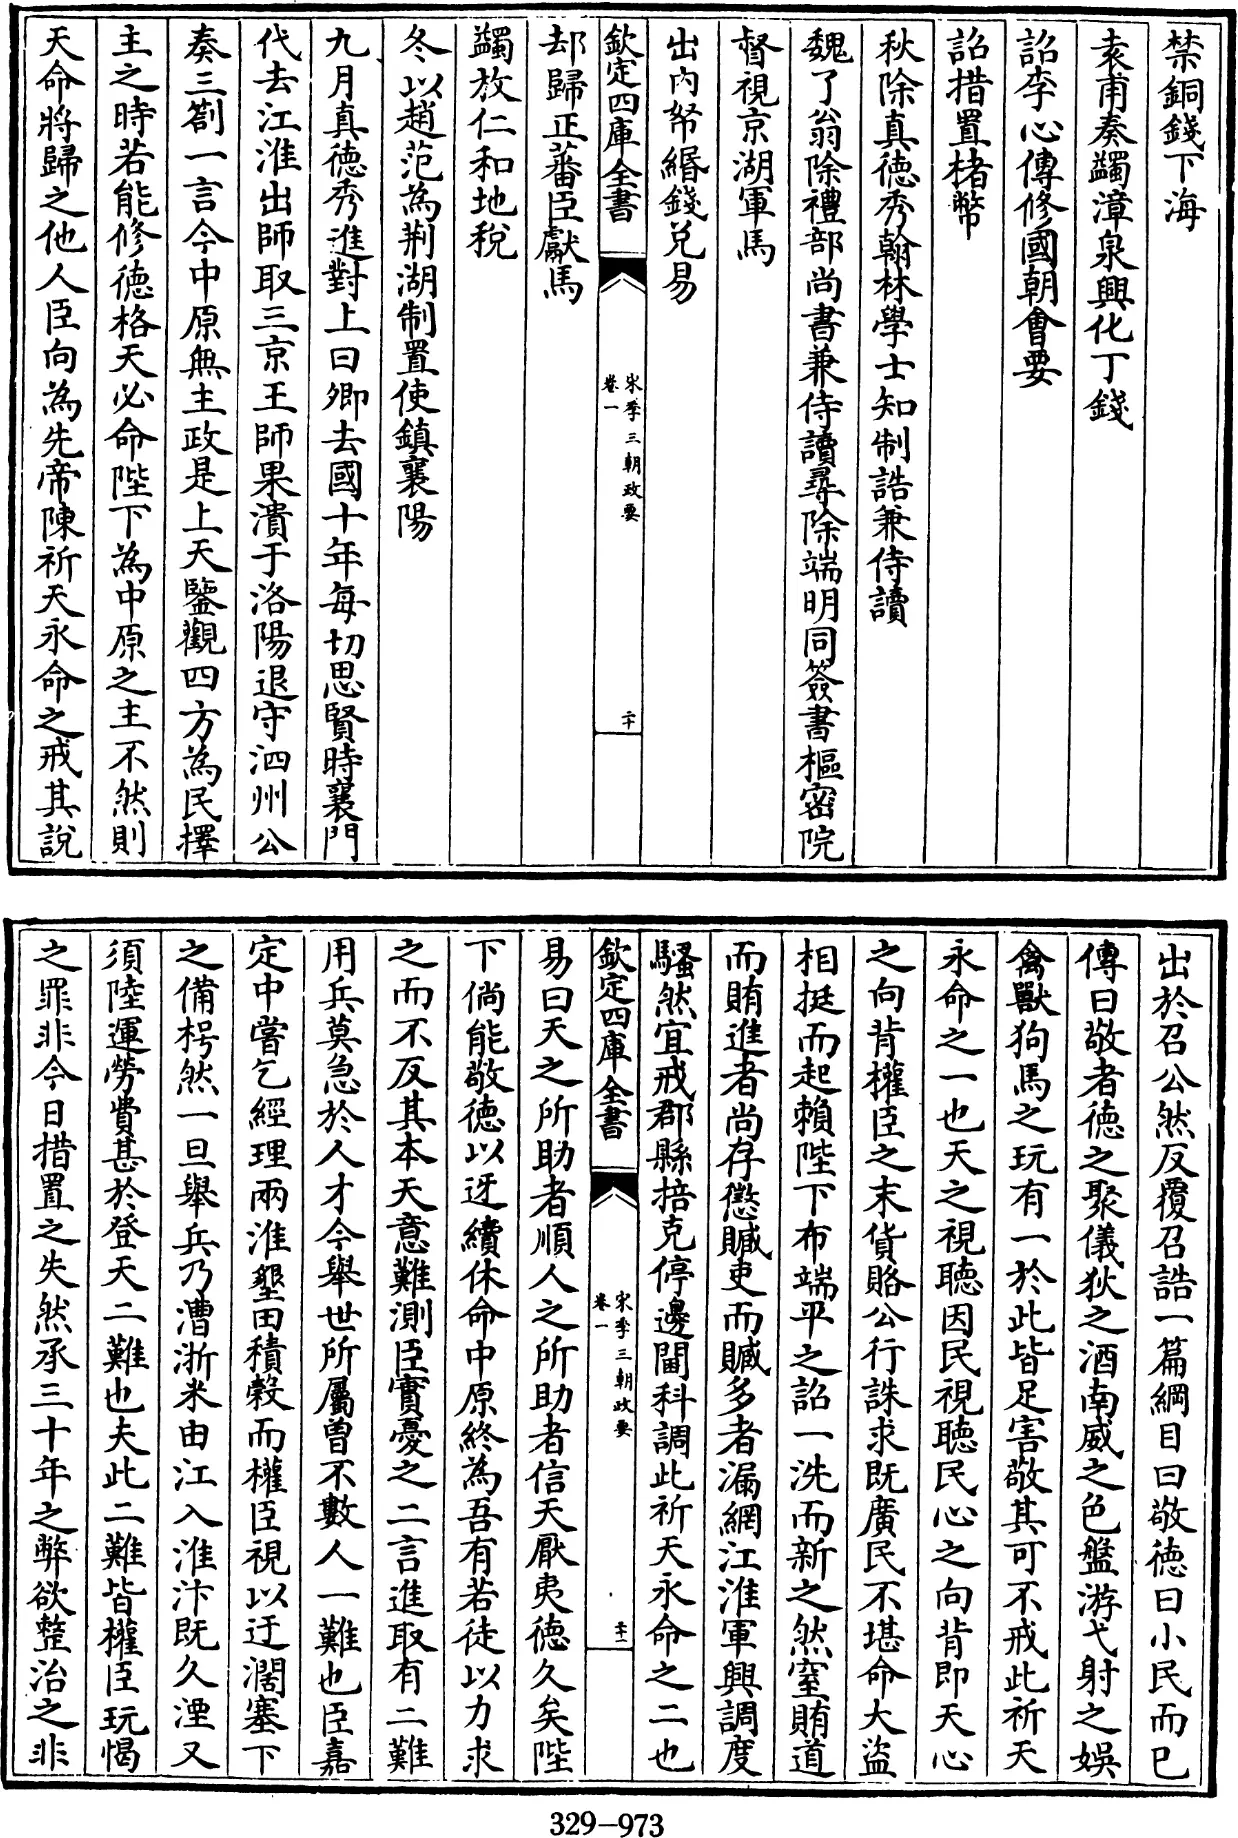 禁銅錢下海
袁甫奏蠲漳泉興化丁錢
詔李心傳修國朝會要
詔措置楮幣
秋除真德秀翰林學士知制誥兼侍讀
魏了翁除禮部尚書兼侍讀尋除端明同簽書樞密院
督視京湖軍馬
出內帑緡錢兌易
欽定四庫全書
宋季三朝政要
卷一
二十
却歸正蕃臣獻馬
蠲放仁和地稅
冬以趙范為荆湖制置使鎮襄陽
九月真德秀進對上曰卿去國十年每切思賢時襄門
代去江淮出師取三京王師果潰于洛陽退守泗州公
奏三劄一言今中原無主政是上天鑒觀四方為民擇
主之時若能修德格天必命陛下為中原之主不然則
天命將歸之他人臣向為先帝陳祈天永命之戒其說
出於召公然反覆召誥一篇綱目曰敬德曰小民而已
傳曰敬者德之聚儀狄之酒南威之色盤游弋射之娛
禽獸狗馬之玩有一於此皆足害敬其可不戒此祈天
永命之一也天之視聽因民視聽民心之向背即天心
之向背權臣之末貨賂公行誅求既廣民不堪命大盜
相挺而起賴陛下布端平之詔一洗而新之然窒賄道
而賄進者尚存懲贓吏而贓多者漏網江淮軍興調度
騷然宜戒郡縣掊克停邊閫科調此祈天永命之二也
欽定四庫全書
宋季三朝政要
卷一
二十一
易曰天之所助者順人之所助者信天厭夷德久矣陛
下倘能敬德以迓續休命中原終為吾有若徒以力求
之而不反其本天意難測臣實憂之二言進取有二難
用兵莫急於人才今舉世所屬曾不數人一難也臣嘉
定中嘗乞經理兩淮墾田積穀而權臣視以迂濶塞下
之備枵然一旦舉兵乃漕浙米由江入淮汴既久湮又
須陸運勞費甚於登天二難也夫此二難皆權臣玩愒
之罪非今日措置之失然承三十年之弊欲整治之非
329-973